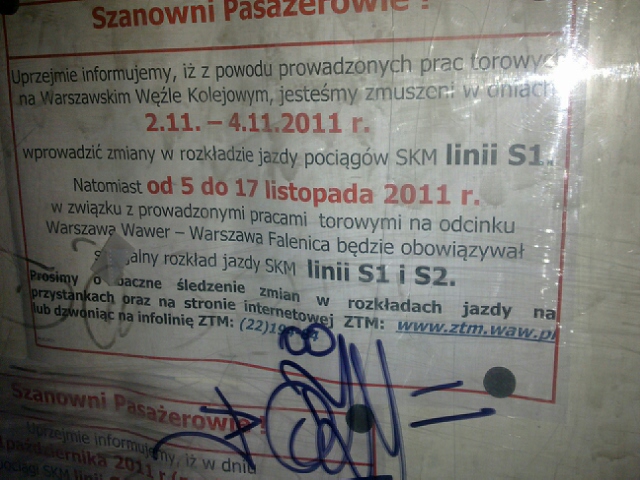 Szanowni Pasażerowie !
Uprzejmie informujemy, iż z powodu prowadzonych prac torowych
na Warszawskim Węźle Kolejowym, jesteśmy zmuszeni w dniach
2.11. – 4.11.2011 r.
wprowadzić zmiany w rozkładzie jazdy pociągów SKM linii S1.
Natomiast od 5 do 17 listopada 2011 r.
w związku z prowadzonymi pracami torowymi na odcinku
Warszawa Wawer – Warszawa Falenica będzie obowiązywał
rozkład jazdy SKM linii S1 i S2.
Prosimy o baczne śledzenie zmian w rozkładach jazdy na
przystankach oraz na stronie internetowej ZTM: www.ztm.waw.pl
lub dzwoniąc na infolinię ZTM: (22)19
Szanowni Pasażerowie !
Uprzejmie informujemy, iż w dniu
października 2011 r.
pociągi SKM linii